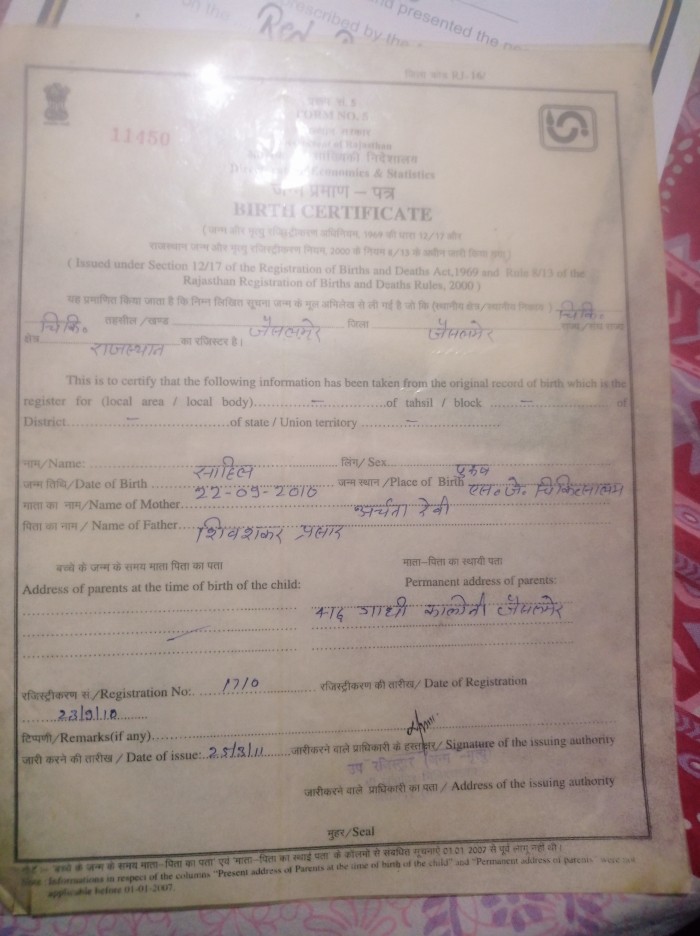 on the
prescribed by the
and presented the
Red
RJ-16/
प्रपत्र सं. 5
FORM NO. 5
11450
सरकार
of Rajasthan
सांख्यिकी निदेशालय
Economics & Statistics
जन्म प्रमाण – पत्र
BIRTH CERTIFICATE
(जन्म और मृत्यु रजिस्ट्रीकरण अधिनियम, 1969 की धारा 12/17 और
राजस्थान जन्म और मृत्यु रजिस्ट्रीकरण नियम, 2000 के नियम 8/13 के अधीन जारी किया गया)
( Issued under Section 12/17 of the Registration of Births and Deaths Act,1969 and Rule 8/13 of the
Rajasthan Registration of Births and Deaths Rules, 2000 )
यह प्रमाणित किया जाता है कि निम्न लिखित सूचना जन्म के मूल अभिलेख से ली गई है जो कि (स्थानीय क्षेत्र/स्थानीय निकाय) चिकि.
चिकि. तहसील /खण्ड जैसलमेर जिला जैसलमेर राज्य/संघ राज्य
क्षेत्र राजस्थान का रजिस्टर है।
This is to certify that the following information has been taken from the original record of birth which is the
register for (local area / local body)..... – .....of tahsil / block ..... – ..... of
District..... – .....of state / Union territory ..... – .....
नाम/Name: साहिल लिंग/ Sex पुरुष
जन्म तिथि/Date of Birth 22-09-2010 जन्म स्थान /Place of Birth एस. जे. चिकित्सालय
माता का नाम/Name of Mother देवी
पिता का नाम / Name of Father
बच्चे के जन्म के समय माता पिता का पता माता–पिता का स्थायी पता
Address of parents at the time of birth of the child: Permanent address of parents:
गांधी कालोनी जैसलमेर
रजिस्ट्रीकरण सं./Registration No: 1710 रजिस्ट्रीकरण की तारीख/ Date of Registration
23/9/10
टिप्पणी/Remarks(if any)
जारी करने की तारीख / Date of issue: 25/3/11 जारीकरने वाले प्राधिकारी के हस्ताक्षर/ Signature of the issuing authority
उप रजिस्ट्रार
जारीकरने वाले प्राधिकारी का पता / Address of the issuing authority
मुहर/Seal
नोट :- 'बच्चे के जन्म के समय माता–पिता का पता' एवं 'माता–पिता का स्थाई पता' के कॉलमों से संबंधित सूचनाएं 01.01. 2007 से पूर्व लागू नहीं थी।
Note : Informations in respect of the columns "Present address of Parents at the time of birth of the child" and "Permanent address of parents" were not
applicable before 01-01-2007.